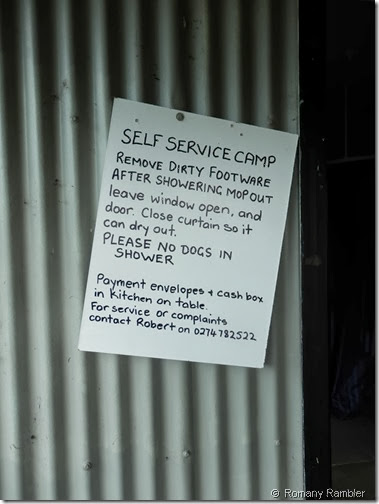 SELF SERVICE CAMP
REMOVE DIRTY FOOTWARE
AFTER SHOWERING MOP OUT
leave window open, and
door. Close curtain so it
can dry out.
PLEASE NO DOGS IN
SHOWER
Payment envelopes + cash box
in Kitchen on table.
For service or complaints
contact Robert on 0274782522
© Romany Rambler